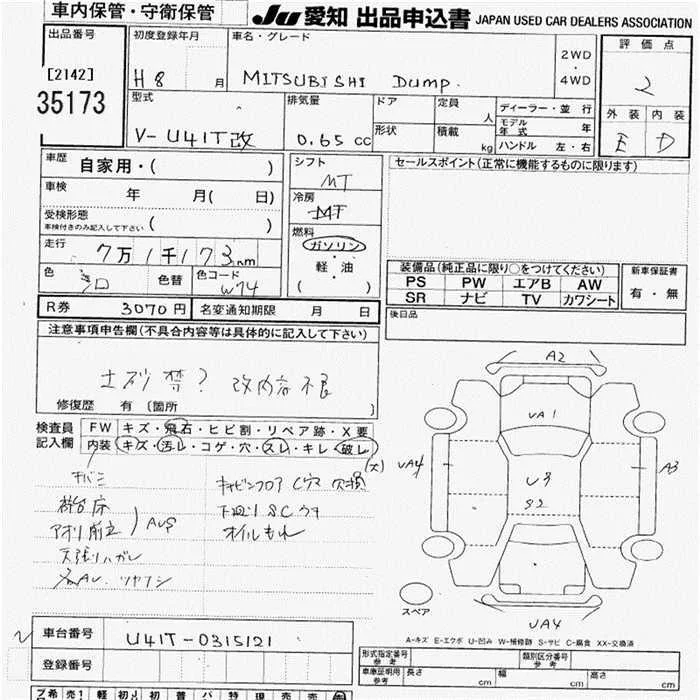 車内保管・守衛保管
JU 愛知 出品申込書 JAPAN USED CAR DEALERS ASSOCIATION
出品番号
[2142]
35173
初度登録年月
H8 月
車名・グレード
MITSUBISHI Dump.
2WD
・
4WD
評価点
2
外装 内装
E D
型式
V-U41T改
排気量
0.65 cc
ドア
形状
定員 人
積載 kg
ディーラー・並行
モデル年式 年
ハンドル 左・右
車歴 自家用・( )
車検 年 月( 日)
受検形態
車検付きのみ記入して下さい ( )
走行 7万1千173 km
色 シロ 色替 色コード W74
シフト
MT
冷房
燃料
ガソリン
軽・油
( )
セールスポイント(正常に機能するものに限ります)
装備品(純正品に限り○をつけてください)
PS PW エアB AW
SR ナビ TV カワシート
新車保証書
有・無
後日品
R券 3070円 名変通知期限 月 日
注意事項申告欄(不具合内容等は具体的に記入して下さい)
土砂禁? 改内容不良
修復歴 有 〔箇所 〕
検査員記入欄
FW キズ・飛石・ヒビ割・リペア跡・X要
内装 キズ・汚レ・コゲ・穴・スレ・キレ・破レ
(大)
キバミ
荷台床
アオリ 前立 AUS
天張りハガレ
キャビンフロア C穴 欠損
下廻り SC
オイルもれ
A2
UA1
UA4
U3
S2
A3
UA4
スペア
A-キズ E-エクボ U-凹み W-補修跡 S-サビ C-腐食 XX-交換済
車台番号 U41T-0315121
登録番号
形式指定番号
参考
類別区分番号
参考
車庫証明用
参考
長さ cm 幅 cm 高さ cm